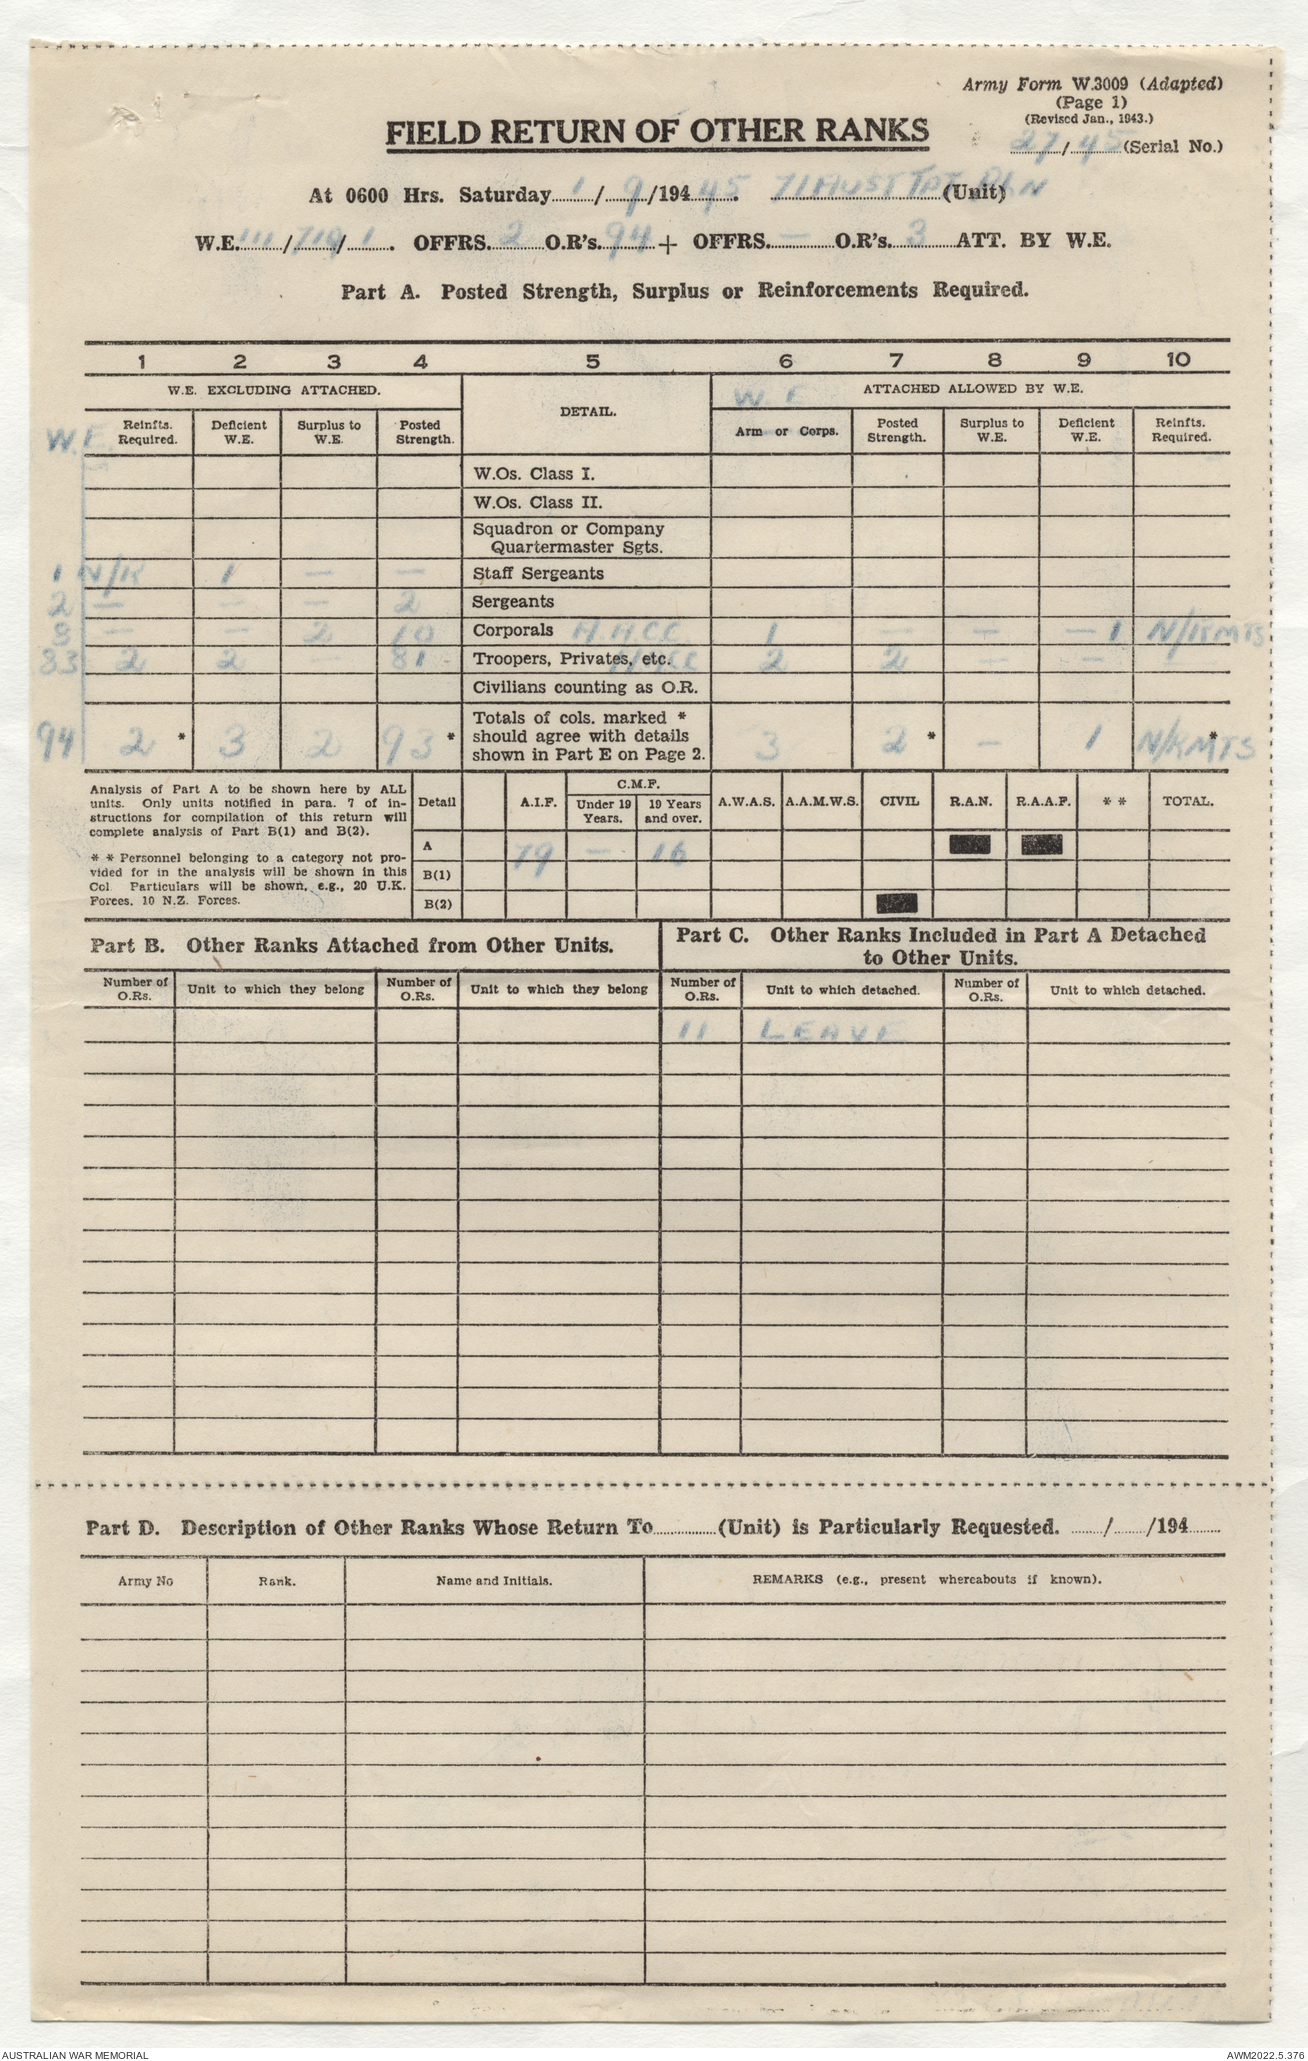 Army Form W.3009 (Adapted)
(Page 1)
(Revised Jan., 1943.)
FIELD RETURN OF OTHER RANKS
27/45 (Serial No.)
At 0600 Hrs. Saturday 1/9/194 45. 71 AUST TPT PLN (Unit)
W.E. 111/719/1. OFFRS. 2 O.R's. 94 + OFFRS. — O.R's. 3 ATT. BY W.E.
Part A. Posted Strength, Surplus or Reinforcements Required.
1 2 3 4 5 6 7 8 9 10
W.E. EXCLUDING ATTACHED. DETAIL. W.E ATTACHED ALLOWED BY W.E.
W.E. Reinfts. Required. Deficient W.E. Surplus to W.E. Posted Strength. Arm or Corps. Posted Strength. Surplus to W.E. Deficient W.E. Reinfts. Required.
W.Os. Class I.
W.Os. Class II.
Squadron or Company
Quartermaster Sgts.
1 N/K 1 — — Staff Sergeants
2 — — — 2 Sergeants
8 — — 2 10 Corporals A.A.C.C. 1 — — — 1 N/KMTS
83 2 2 — 81 Troopers, Privates, etc. 2 2 — — —
Civilians counting as O.R.
94 2 * 3 2 93 * Totals of cols. marked * should agree with details shown in Part E on Page 2. 3 2 * — 1 N/KMTS *
Analysis of Part A to be shown here by ALL
units. Only units notified in para. 7 of in-
structions for compilation of this return will
complete analysis of Part B(1) and B(2).
* * Personnel belonging to a category not pro-
vided for in the analysis will be shown in this
Col Particulars will be shown, e.g., 20 U.K.
Forces, 10 N.Z. Forces.
Detail A.I.F. C.M.F. Under 19 Years. 19 Years and over. A.W.A.S. A.A.M.W.S. CIVIL R.A.N. R.A.A.F. * * TOTAL.
A 79 — 16
B(1)
B(2)
Part B. Other Ranks Attached from Other Units.
Part C. Other Ranks Included in Part A Detached
to Other Units.
Number of O.Rs. Unit to which they belong Number of O.Rs. Unit to which they belong Number of O.Rs. Unit to which detached. Number of O.Rs. Unit to which detached.
11 LEAVE
Part D. Description of Other Ranks Whose Return To (Unit) is Particularly Requested. / /194
Army No Rank. Name and Initials. REMARKS (e.g., present whereabouts if known).
AUSTRALIAN WAR MEMORIAL
AWM2022.5.376